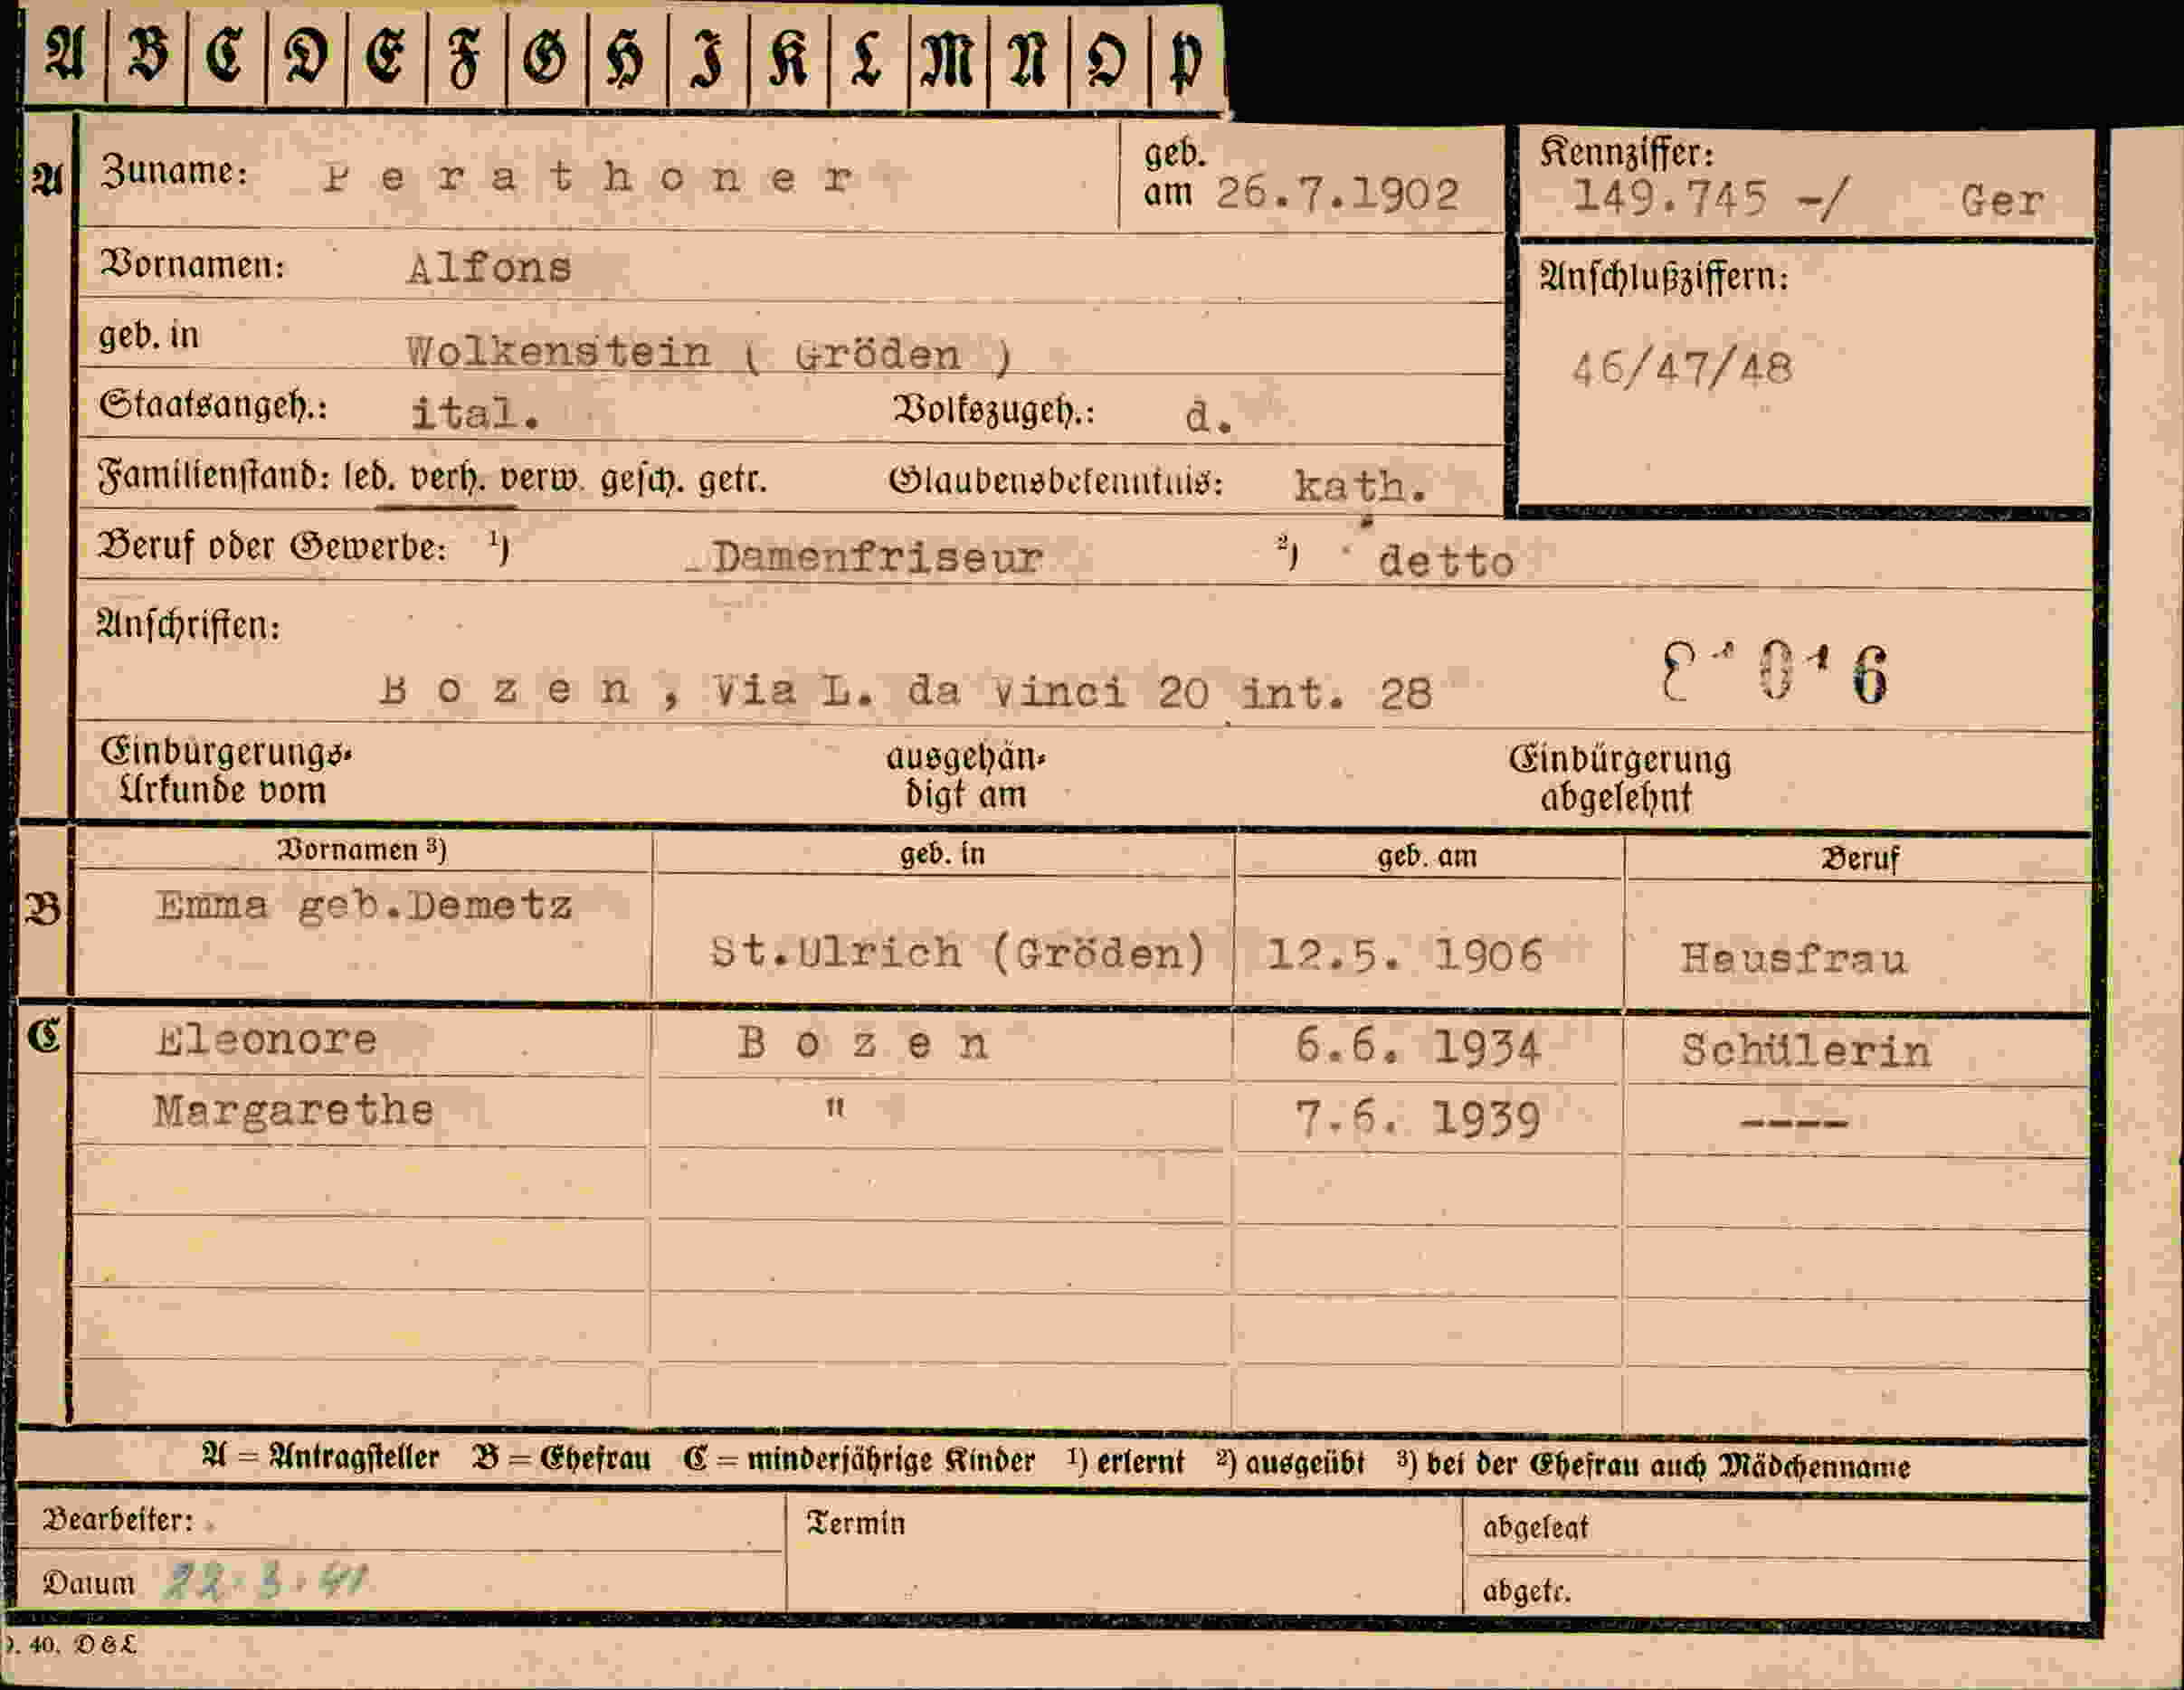 A B C D E F G H I K L M N O P
A Zuname: Perathoner geb. am 26.7.1902 Kennziffer: 149.745 -/ Ger
Vornamen: Alfons
Anschlußziffern:
geb. in Wolkenstein ( Gröden )
46/47/48
Staatsangeh.: ital. Volkszugeh.: d.
Familienstand: led. verh. verw. gesch. getr. Glaubensbekenntnis: kath.
Beruf oder Gewerbe: ¹) Damenfriseur ²) detto
Anschriften:
Bozen, Via L. da Vinci 20 int. 28
Einbürgerungs-
Urkunde vom
ausgehän-
digt am
Einbürgerung
abgelehnt
Vornamen ³) geb. in geb. am Beruf
B Emma geb.Demetz
St.Ulrich (Gröden) 12.5. 1906 Hausfrau
C Eleonore Bozen 6.6. 1934 Schülerin
Margarethe " 7.6. 1939 ----
A = Antragsteller B = Ehefrau C = minderjährige Kinder ¹) erlernt ²) ausgeübt ³) bei der Ehefrau auch Mädchenname
Bearbeiter: Termin abgelegt
Datum 22.3.41 abgetr.
. 40. D&L